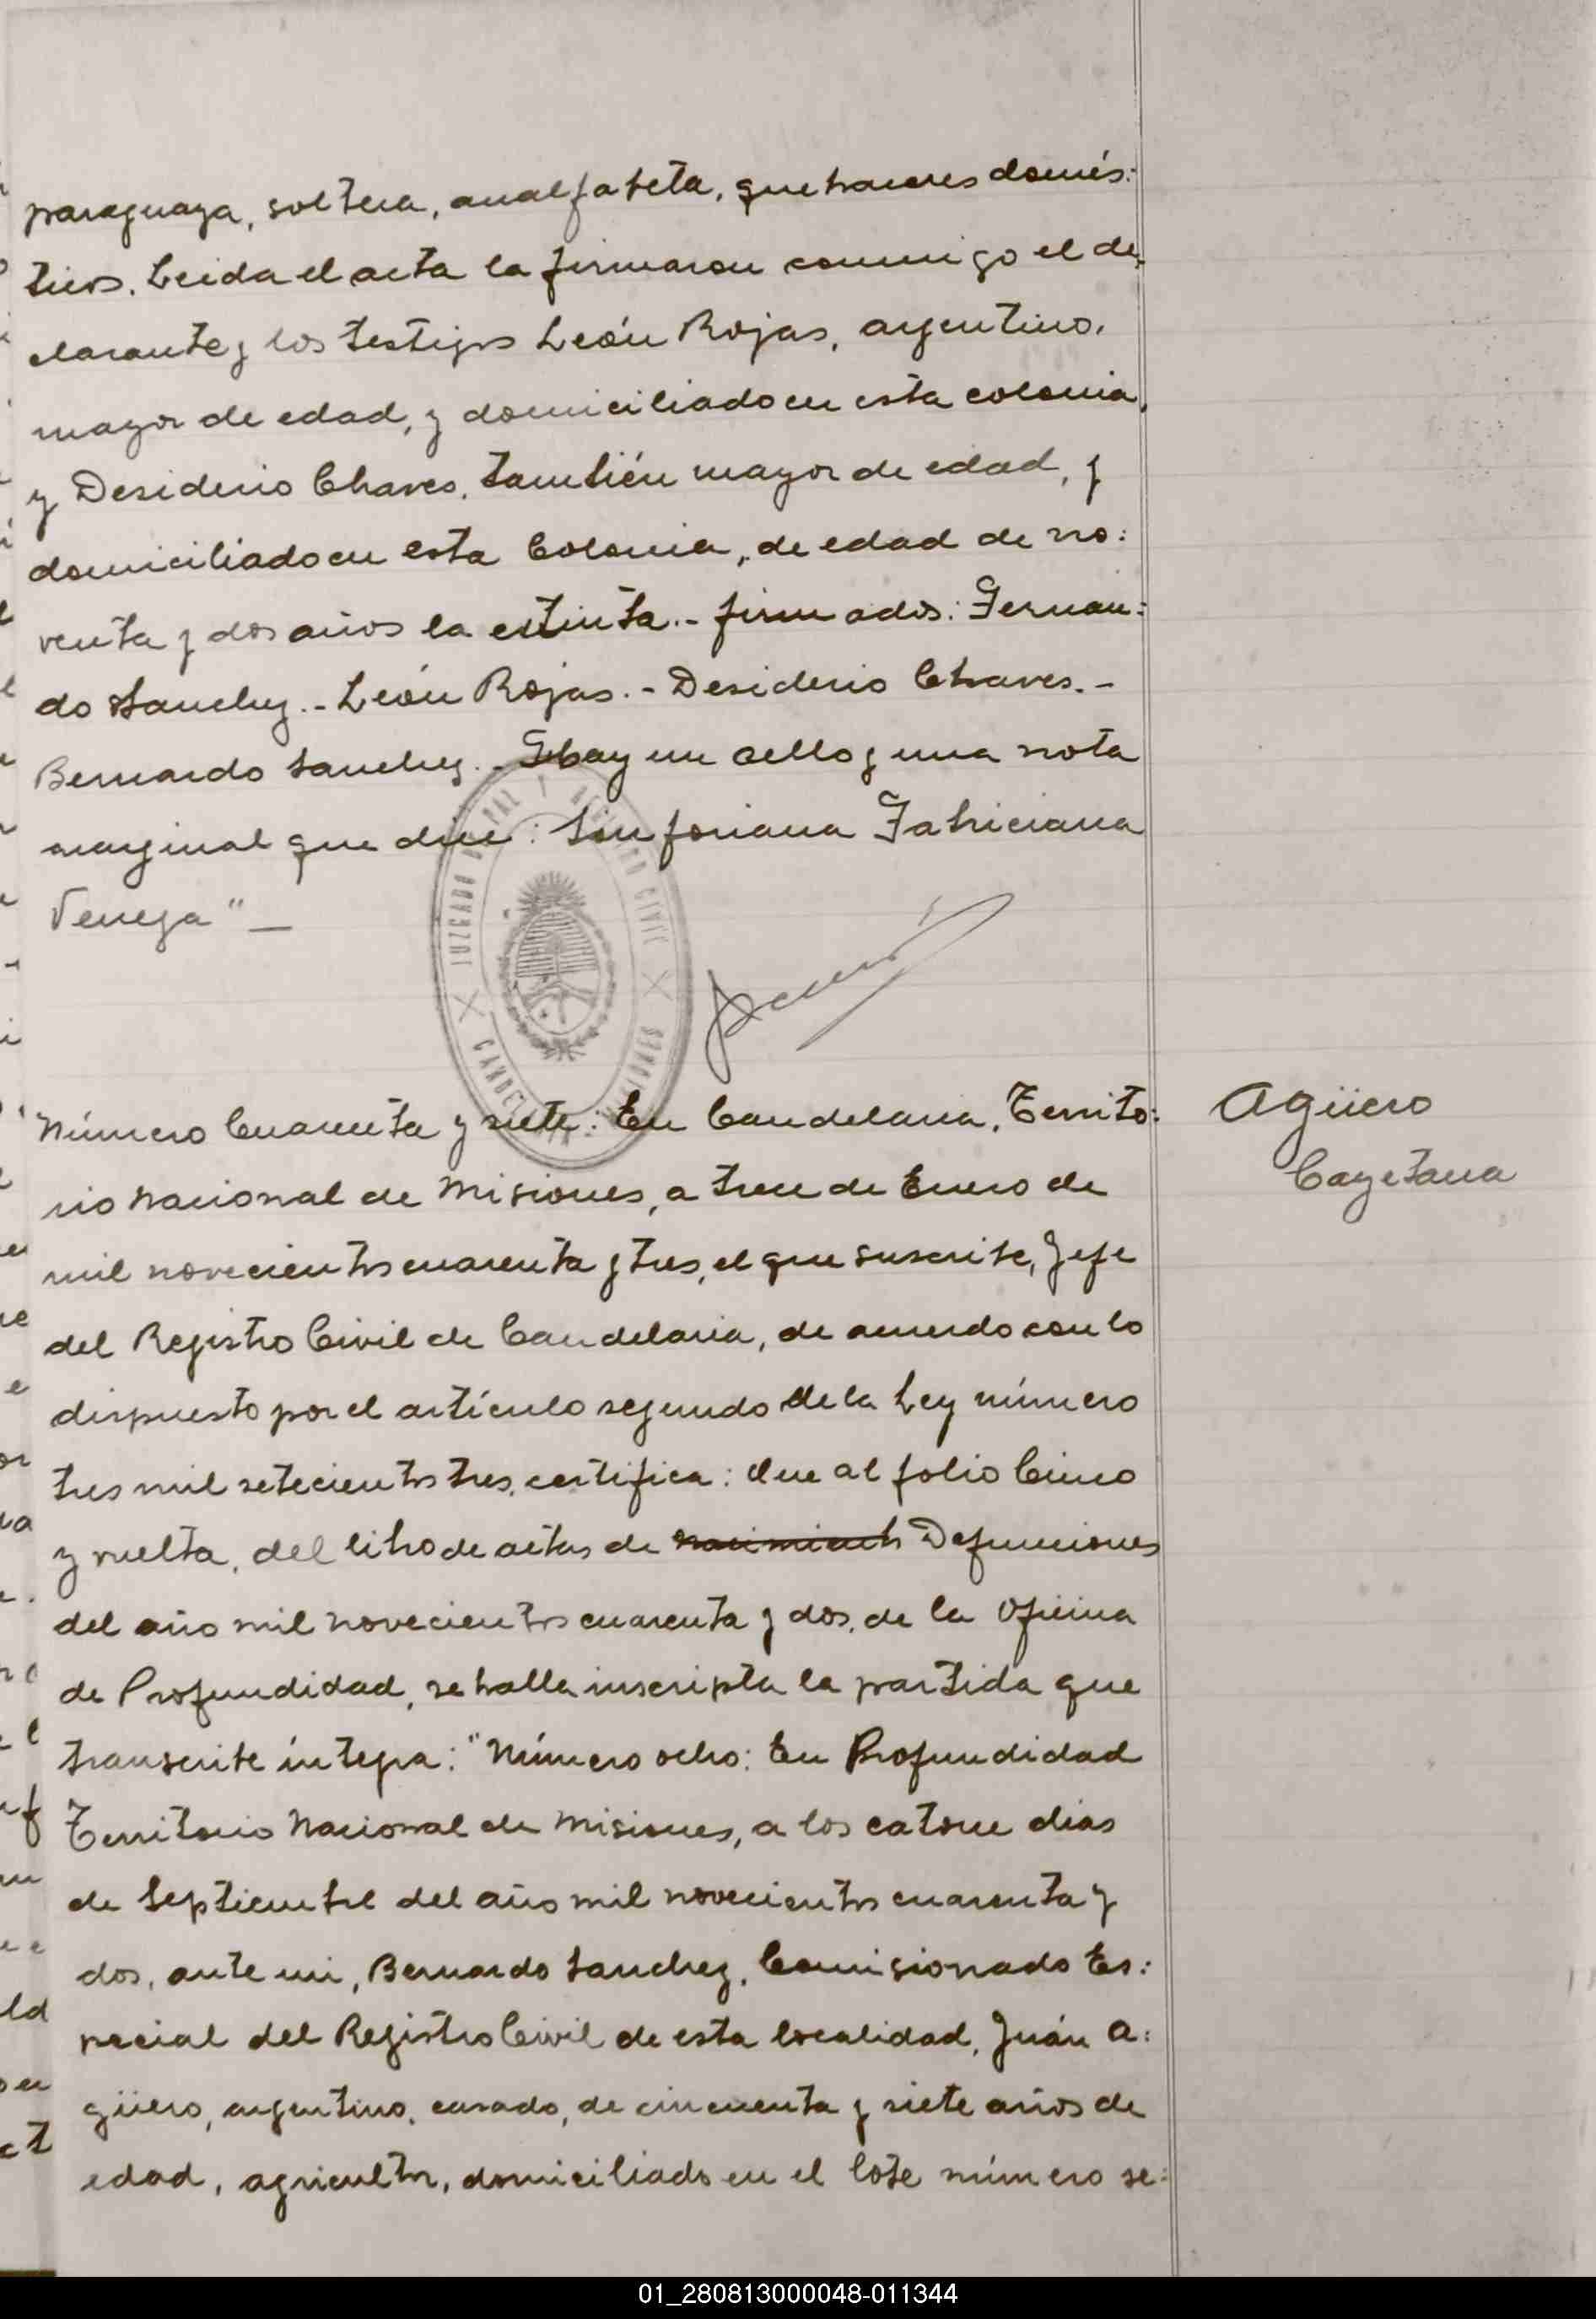 paraguaya, soltera, analfabeta, quehaceres domés:
ticos. Leida el acta la firmaron conmigo el de:
clarante y los testigos León Rojas, argentino,
mayor de edad, y domiciliado en esta colonia,
y Desiderio Chaves, también mayor de edad, y
domiciliado en esta Colonia, de edad de no:
venta y dos años la extinta.- firmados: Fernan:
do Sanchez.- León Rojas.- Desiderio Chaves.-
Bernardo Sanchez.- Hay un sello y una nota
marginal que dice: Sinforiana Fabriciana
Venega" —
JUZGADO DE PAZ Y REGISTRO CIVIL
CANDELARIA MISIONES
Número Cuarenta y siete: En Candelaria, Territo:
Agüero
Cayetana
rio Nacional de Misiones, a trece de Enero de
mil novecientos cuarenta y tres, el que suscribe, Jefe
del Registro Civil de Candelaria, de acuerdo con lo
dispuesto por el artículo segundo de la Ley número
tres mil setecientos tres, certifica: Que al folio Cinco
y vuelta, del libro de actas de nacimiento Defunciones
del año mil novecientos cuarenta y dos, de la Oficina
de Profundidad, se halla inscripta la partida que
transcribe íntegra: "Número ocho: En Profundidad
Territorio Nacional de Misiones, a los catorce dias
de Septiembre del año mil novecientos cuarenta y
dos, ante mi, Bernardo Sanchez, Comisionado Es:
pecial del Registro Civil de esta localidad, Juán A:
güero, argentino, casado, de cincuenta y siete años de
edad, agricultor, domiciliado en el lote número se:
01_280813000048-011344